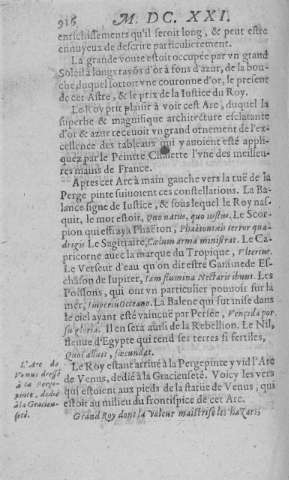 916 M. DC. XXI.
enrichissements qu'il seroit long, & peut estre
ennuyeux de descrire particulierement.
La grande voute estoit occupée par vn grand
Soleil à longs rayõs d'or à fons d'azur, de la bou-
che duquel sortoit vne couronne d'or, le present
de cet Astre, & le prix de la Iustice du Roy.
Le Roy prit plaisir à voir cest Arc, duquel la
superbe & magnifique architecture esclatante
d'or & azur receuoit vn grand ornement de l'ex-
cellence des tableaux qui y auoient esté appli-
quez par le Peintre l'vne des meilleu-
res mains de France.
Apres cet Arc à main gauche vers la ruë de la
Perge pinte suiuoient ces constellations. La Ba-
lance signe de Iustice, & sous lequel le Roy nas-
quit, le mot estoit, Quo natus, quo iustus. Le Scor-
pion qui essraya Phaëton, Phaëtontis terror qua-
drigis. Le Sagittaire, Cælum arma ministrat. Le Ca-
pricorne auec la marque du Tropique,
Le Verseur d'eau qu'on dit estre Ganimede Es-
chãson de Iupiter, Iam flumina Nectaris ibunt. Les
Poissons, qui ont vn particulier pouuoir sur la
mer, Imperium Oceano. La Balene qui fut mise dans
le ciel ayant esté vaincuë par Persée, Vençida por
su gloria. Il en sera aussi de la Rebellion. Le Nil,
fleuue d'Egypte qui rend ses terres si fertiles,
Quos alluit, fœcundat.
Le Roy estant arriué à la Pergepinte y vid l'Arc
de Venus, dedié à la Gracieuseté. Voicy les vers
qui estoient aux pieds de la statuë de Venus, qui
estoit au milieu du frontispice de cet Arc.
Grand Roy dont la valeur maistrise les hazars
L'Arc de
Venus dressé
à la Perge-
pinte, dedié
à la Gracieu-
seté.